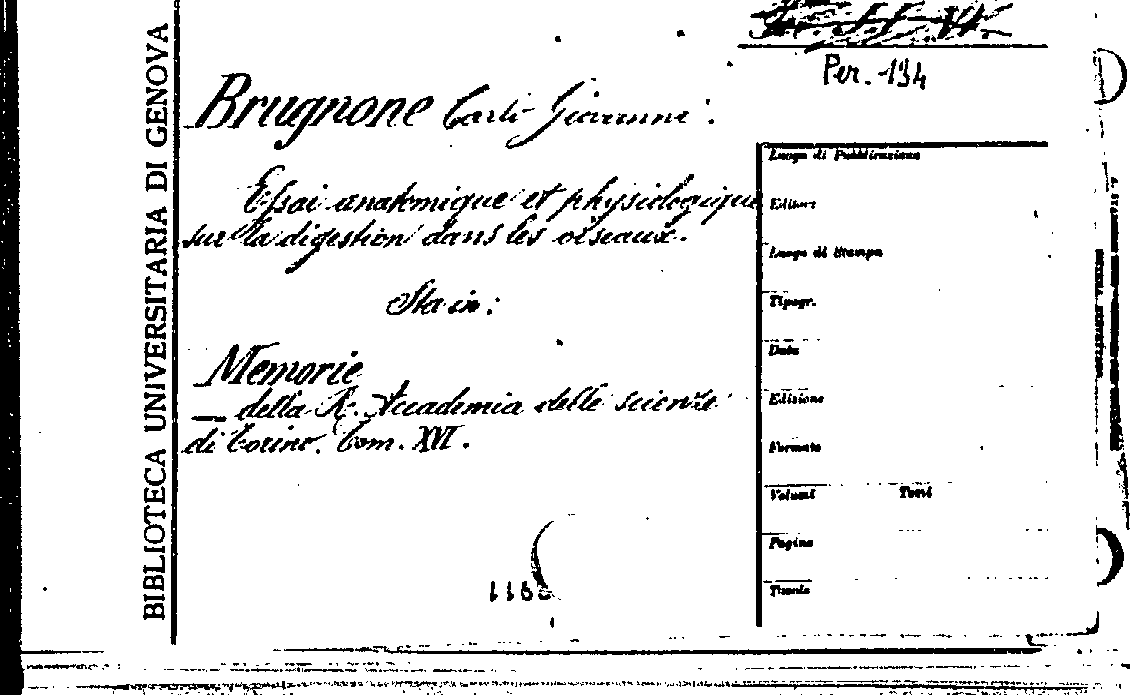 Per. 134
BIBLIOTECA UNIVERSITARIA DI GENOVA
Brugnone Carlo Giovanni.
Essai anatomique et physiologique
sur la digestion dans les oiseaux.
Sta in:
Memorie
— della R. Accademia delle scienze
di Torino. Tom. XVI.
Luogo di Pubblicazione
Editore
Luogo di Stampa
Tipogr.
Data
Edizione
Formato
Volumi Tomi
Pagine
Tavole